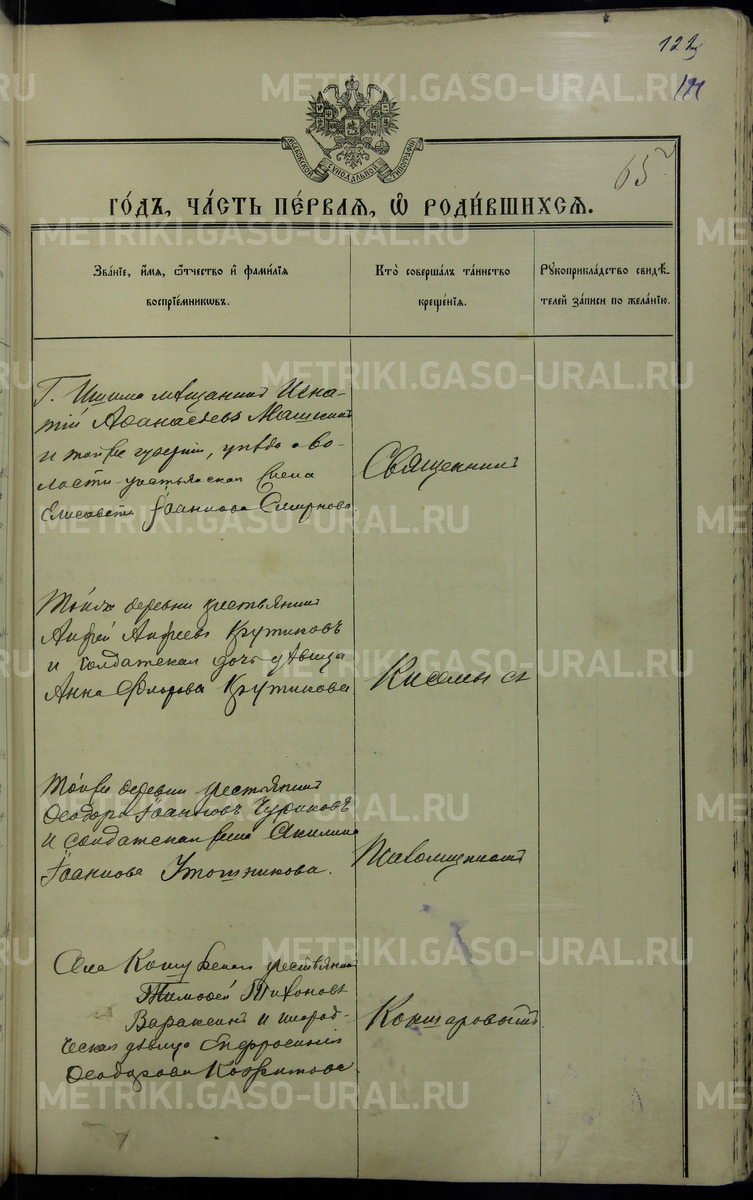 122
121
МОСКОВСКОЙ СѴНОДАЛЬНОЙ ТИПОГРАФІИ
65
ГО́ДЪ, ЧА́СТЬ ПЕ́РВАЯ, Ѡ҆ РОДИ́ВШИХСЯ.
Зва́ніе, и҆́мя, ѻ҆́тчество и҆ фами́лія
воспріе́мникѡвъ.
Кто̀ соверша́лъ та́инство
креще́нія.
Рꙋкоприкла́дство свидѣ́-
телей за́писи по жела́нію.
Г. Ишима мещанинъ Игна-
тій Аѳанасьевъ Машкинъ
и тойже губерніи, уѣзда и во-
лости крестьянская жена
Елисавета Іоаннова Смирнова
Священникъ
Тойже деревни крестьянинъ
Андрей Андреевъ Крутиковъ
и солдатская дочь дѣвица
Анна Флорова Крутикова
Тойже деревни крестьянинъ
Ѳеодоръ Іоанновъ Чуриковъ
и солдатская жена Акилина
Іоаннова
Псаломщикъ
Села крестьянинъ
Тимоѳей Тихоновъ
Вараксинъ и
дѣвица
Ѳеодорова
Кокшаровъ
METRIKI.GASO-URAL.RU